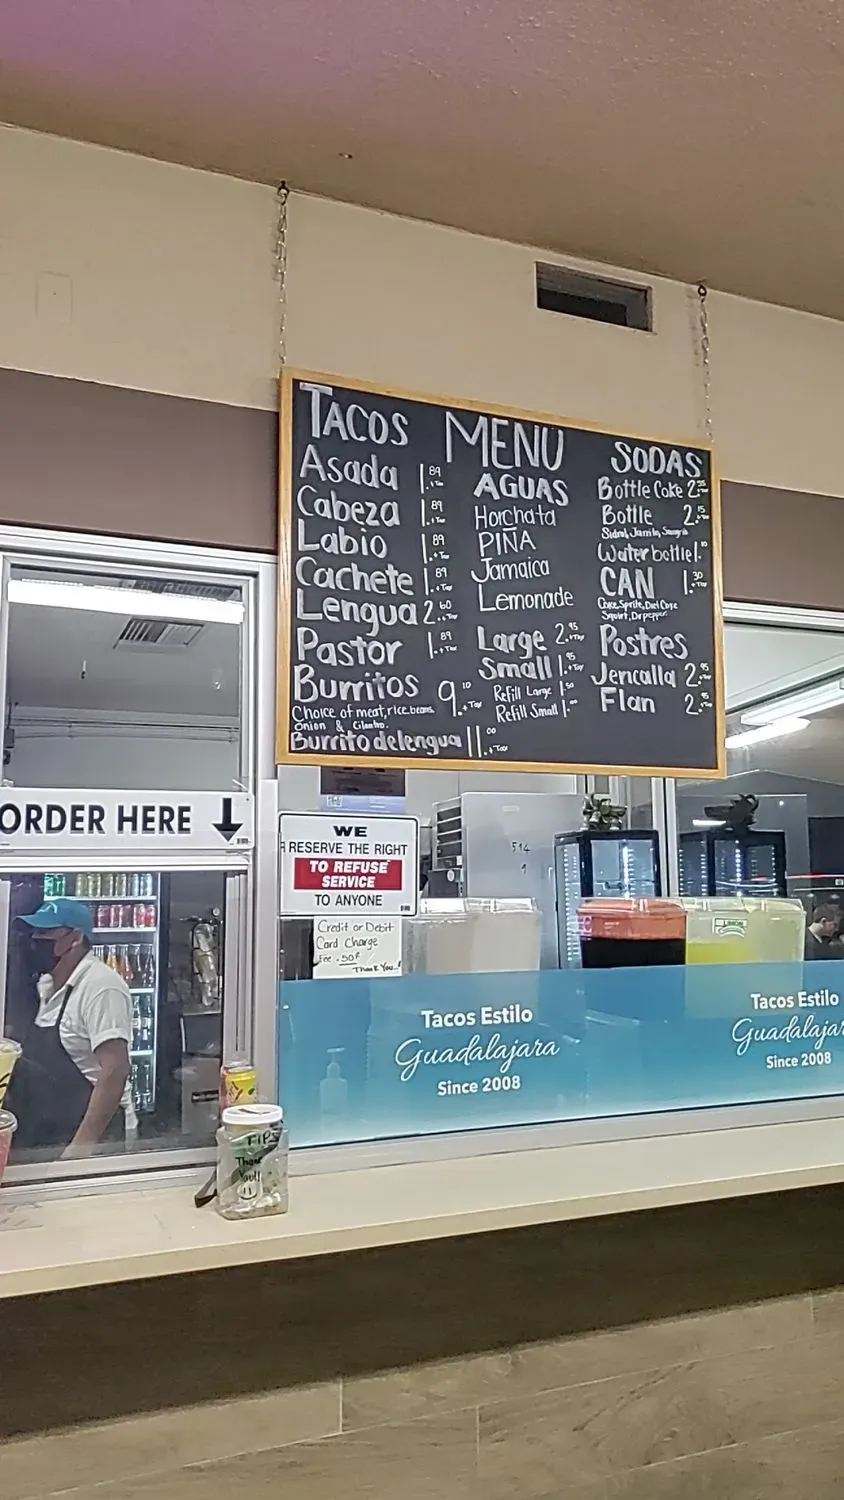 TACOS
Asada 1.89 +Tax
Cabeza 1.89 +Tax
Labio 1.89 +Tax
Cachete 1.89 +Tax
Lengua 2.60 +Tax
Pastor 1.89 +Tax
Burritos 9.10 +Tax
Choice of meat, rice, beans,
Onion & Cilantro.
Burrito de lengua 11.00 +Tax
MENU
AGUAS
Horchata
PIÑA
Jamaica
Lemonade
Large 2.95 +Tax
Small 1.95 +Tax
Refill Large 1.50
Refill Small 1.00
SODAS
Bottle Coke
Bottle 2.15
Sidral, Jarrito, Sangria
Water bottle 1.10
CAN 1.30 +Tax
Coke, Sprite, Diet Coke
Squirt, Dr pepper
Postres
Jericalla 2.95
Flan 2.95
ORDER HERE
WE
RESERVE THE RIGHT
TO REFUSE
SERVICE
TO ANYONE
Credit or Debit
Card Charge
Fee .50¢
Thank You..!
514
LIMON
Tacos Estilo
Guadalajara
Since 2008
Tacos Estilo
Guadalajar
Since 2008
TIPS
Thank
You!!